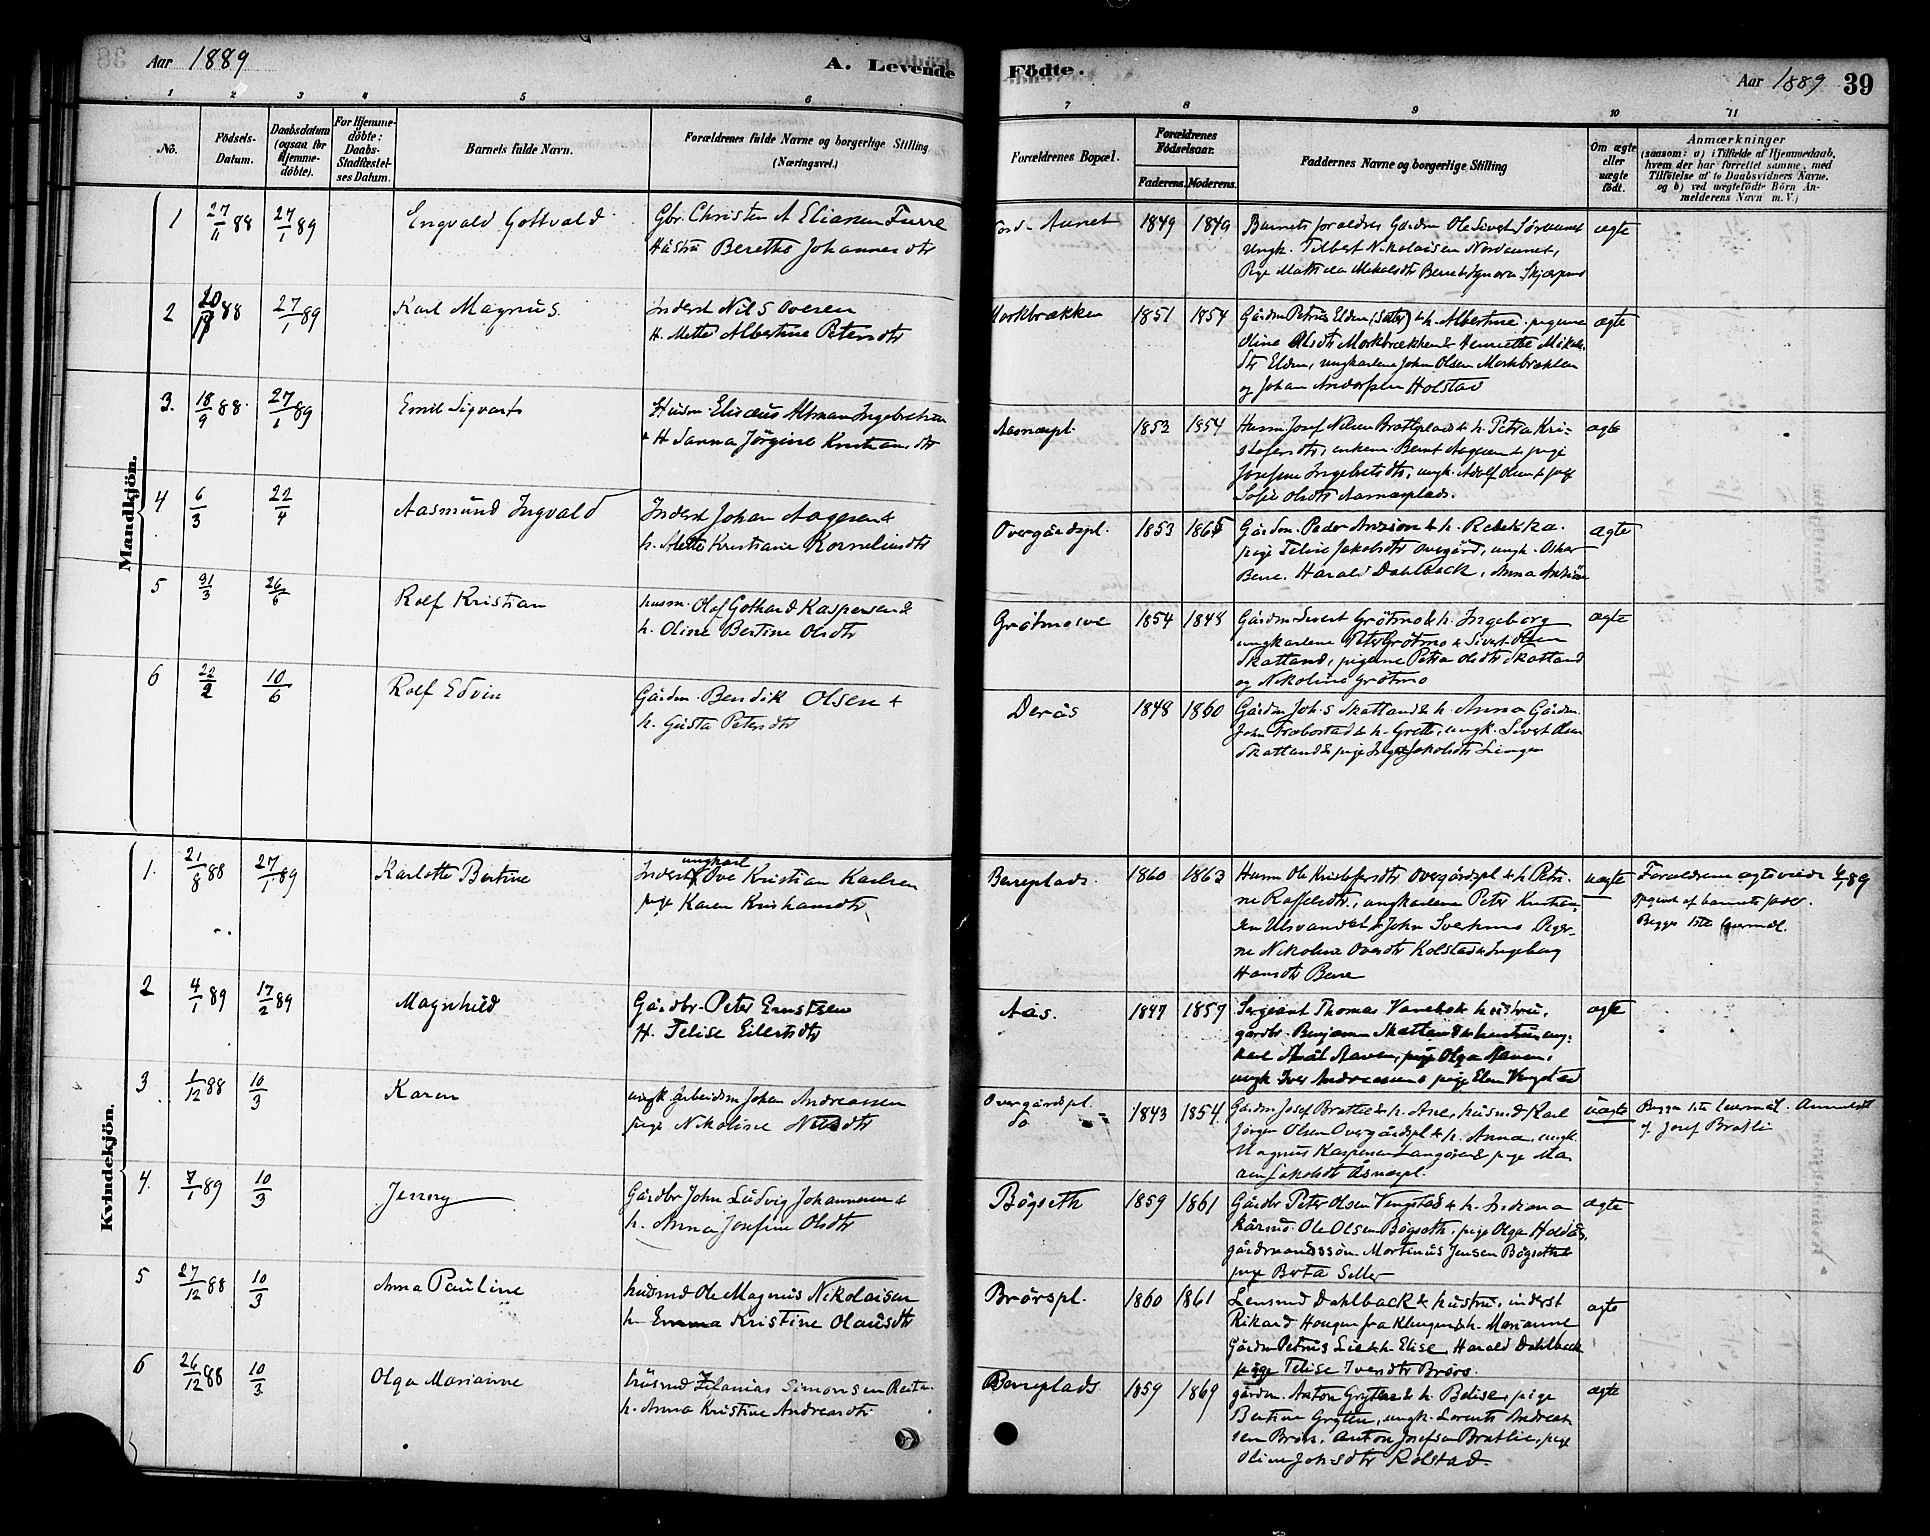 Aar 1889
A. Levende Födte.
Aar 1889
39
1 2 3 4 5 6 7 8 9 10 11
No.
Födsels-Datum.
Daabsdatum (ogsaa for Hjemme-döbte).
For Hjemme-döbte: Daabs-Stadfæstel-ses Datum.
Barnets fulde Navn.
Forældrenes fulde Navne og borgerlige Stilling
(Næringsvei.)
Forældrenes Bopæl.
Forældrenes Födselsaar.
Faderens. Moderens.
Faddernes Navne og borgerlige Stilling
Om ægte eller uægte født.
Anmærkninger
(saasom: a) i Tilfælde af Hjemmedaab, hvem der har forrettet samme, med Tilföielse af to Daabsvidners Navne. og b) ved uægtefödte Börn Anmelderens Navn m.V.)
Mandkjön.
1 27/11 88 27/1 89 Engvald Gottvald
Gbr. Christen A Eliasen Furre
Hustru Berethe Johannesdtr
Aunet 1849 1849
Barnets forældre, Gårdm Ole Sivert Søraunet
Ungk. Tilbert Nikolaisen Nordaunet,
ægte
2 20/ 88 27/1 89 Karl Magnus
Inderst Nils Ovesen
H. Mette Albertine Petersdtr
Morkbrækken 1851 1854
Gårdm Petrus Elden (Sæter) & h. Albertine. pigerne
Oline Olsdtr Morkbrækken & Henriette Mikals
dtr Elden, ungkarlene John Olsen Morkbrækken
og Johan Andersen Holstad
ægte
3. 18/9 88 27/1 89 Emil Sigvart
Husm. Elisæus Altman Ingebretsen
& H Sanna Jörgine Kristiansdtr
Aasnæspl. 1853 1854
Husm Josef Nilsen Brattlplads & h. Petra Kri-
stofersdtr, enkem. Bernt Aagesen & pige
Josefine Ingebretsdtr, ungk. Adolf Olsen & pige
Sofie Olsdtr Aasnæsplads.
ægte
4 6/3 22/4 Aasmund Ingvald
Inderst Johan Aagesen &
h. Alette Kristiane Korneliusdtr
Overgårdspl. 1853 1865
Gårdm. Peder Anzion & h. Rebekka.
pige Feline Jakobsdtr Overgård, ungk. Oskar
Berre. Harald Dahlback, Anna Anzion
ægte
5 31/3 26/6 Rolf Kristian
husm. Olaf Gothard Kaspersen &
h. Oline Bertine Olsdtr
Grötmosve 1854 1848
Gårdm. Sivert Grötmo & h. Ingeborg
ungkarlene Peter Grötmo & Sivert Olsen
Skatland, pigerne Petra Olsdtr Skatland
og Nikoline Grötmo
ægte
6 22/2 10/6 Rolf Edvin
Gårdm. Bendik Olsen &
h. Gusta Petersdtr
Derås 1848 1860
Gårdm Johs Skatland & h. Anna Gårdm.
John Fræbostad & h. Grette, ungk. Sivert Olsen
Skatland & pige Inga Jakobsdtr
Kvindekjön.
1. 21/8 88 27/1 89 Karlotte Bertine
Inderst ungkarl Ove Kristian Karlsen
pige Karen Kristiansdtr
Berreplads. 1860 1863
Husm Ole Kristofersdtr Overgårdspl & h Petri-
ne Raffelsdtr, ungkarlene Peter Kristian-
sen Ulsvandet & John Pigerne
Nikoline Ovesdtr Kolstad & Ingeborg
Hansdtr Berre
uægte
Forældrene ægteviede 4/1 89
opgivet af barnets fader.
Begges 1ste leiermål.
2 4/1 89 17/2 89 Magnhild
Gårdbr. Peter Ernstsen
H. Telise Eilertsdtr
Aas. 1847 1857
Sergeant Thomas Vanebo & hustru,
gårdbr. Benjamin Skatland & hustru ung-
karl Aaven, pige Olga Aaven,
ungk Iver Andreassen & pige Elen Vengstad
ægte
3 1/12 88 10/3 Karen
ungk. Arbeidsm Johan Andreassen
pige Nikoline Nilsdtr
Overgårdspl.
do 1843 1854
Gårdm Josef Bratlie & h. Ane, husmd Karl
Jörgen Olsen Overgårdspl & h. Anna, ungk.
Magnus Kaspersen Langåsen & pige Ma-
ren Jakobsdtr Åsnæspl.
uægte
Begges 1ste leiermål. Anmeldt
af Josef Bratli
4. 7/1 89 10/3 Jenny
Gårdbr John Ludvig Johannesen &
h. Anna Josefine Olsdtr
Bögseth 1859 1861
Gårdbr Peter Olsen Vengstad & h. Indiana
Ole Olsen Bögseth, pige Olga Holdås,
gårdmandssön Mortinus Jensen Bögseth &
pige Berta Selle
ægte
5 27/12 88 10/3 Anna Pauline
husmd Ole Magnus Nikolaisen
h. Emma Kristine Olausdtr
Brörspl. 1860 1861
Lensmd Dahlback & hustru, inderst
Rikard Haugen fra Klungen & h. Marianne
Gårdm Petrus Lie & h. Elise, Harald Dahlback
pige Telise Iversdtr Brörs.
ægte
6 26/12 88 10/3 Olga Marianne
husmd Zefanias Simonsen
h. Anna Kristine Andreasdtr
Berreplads 1859 1869
gårdm. Anton Gryten & h. Belise, pige
Bertine Gryten, ungk. Lorents Andreas-
sen Brörs, Anton Josefsen Bratlie, pige
Oline Johsdtr Kolstad.
ægte